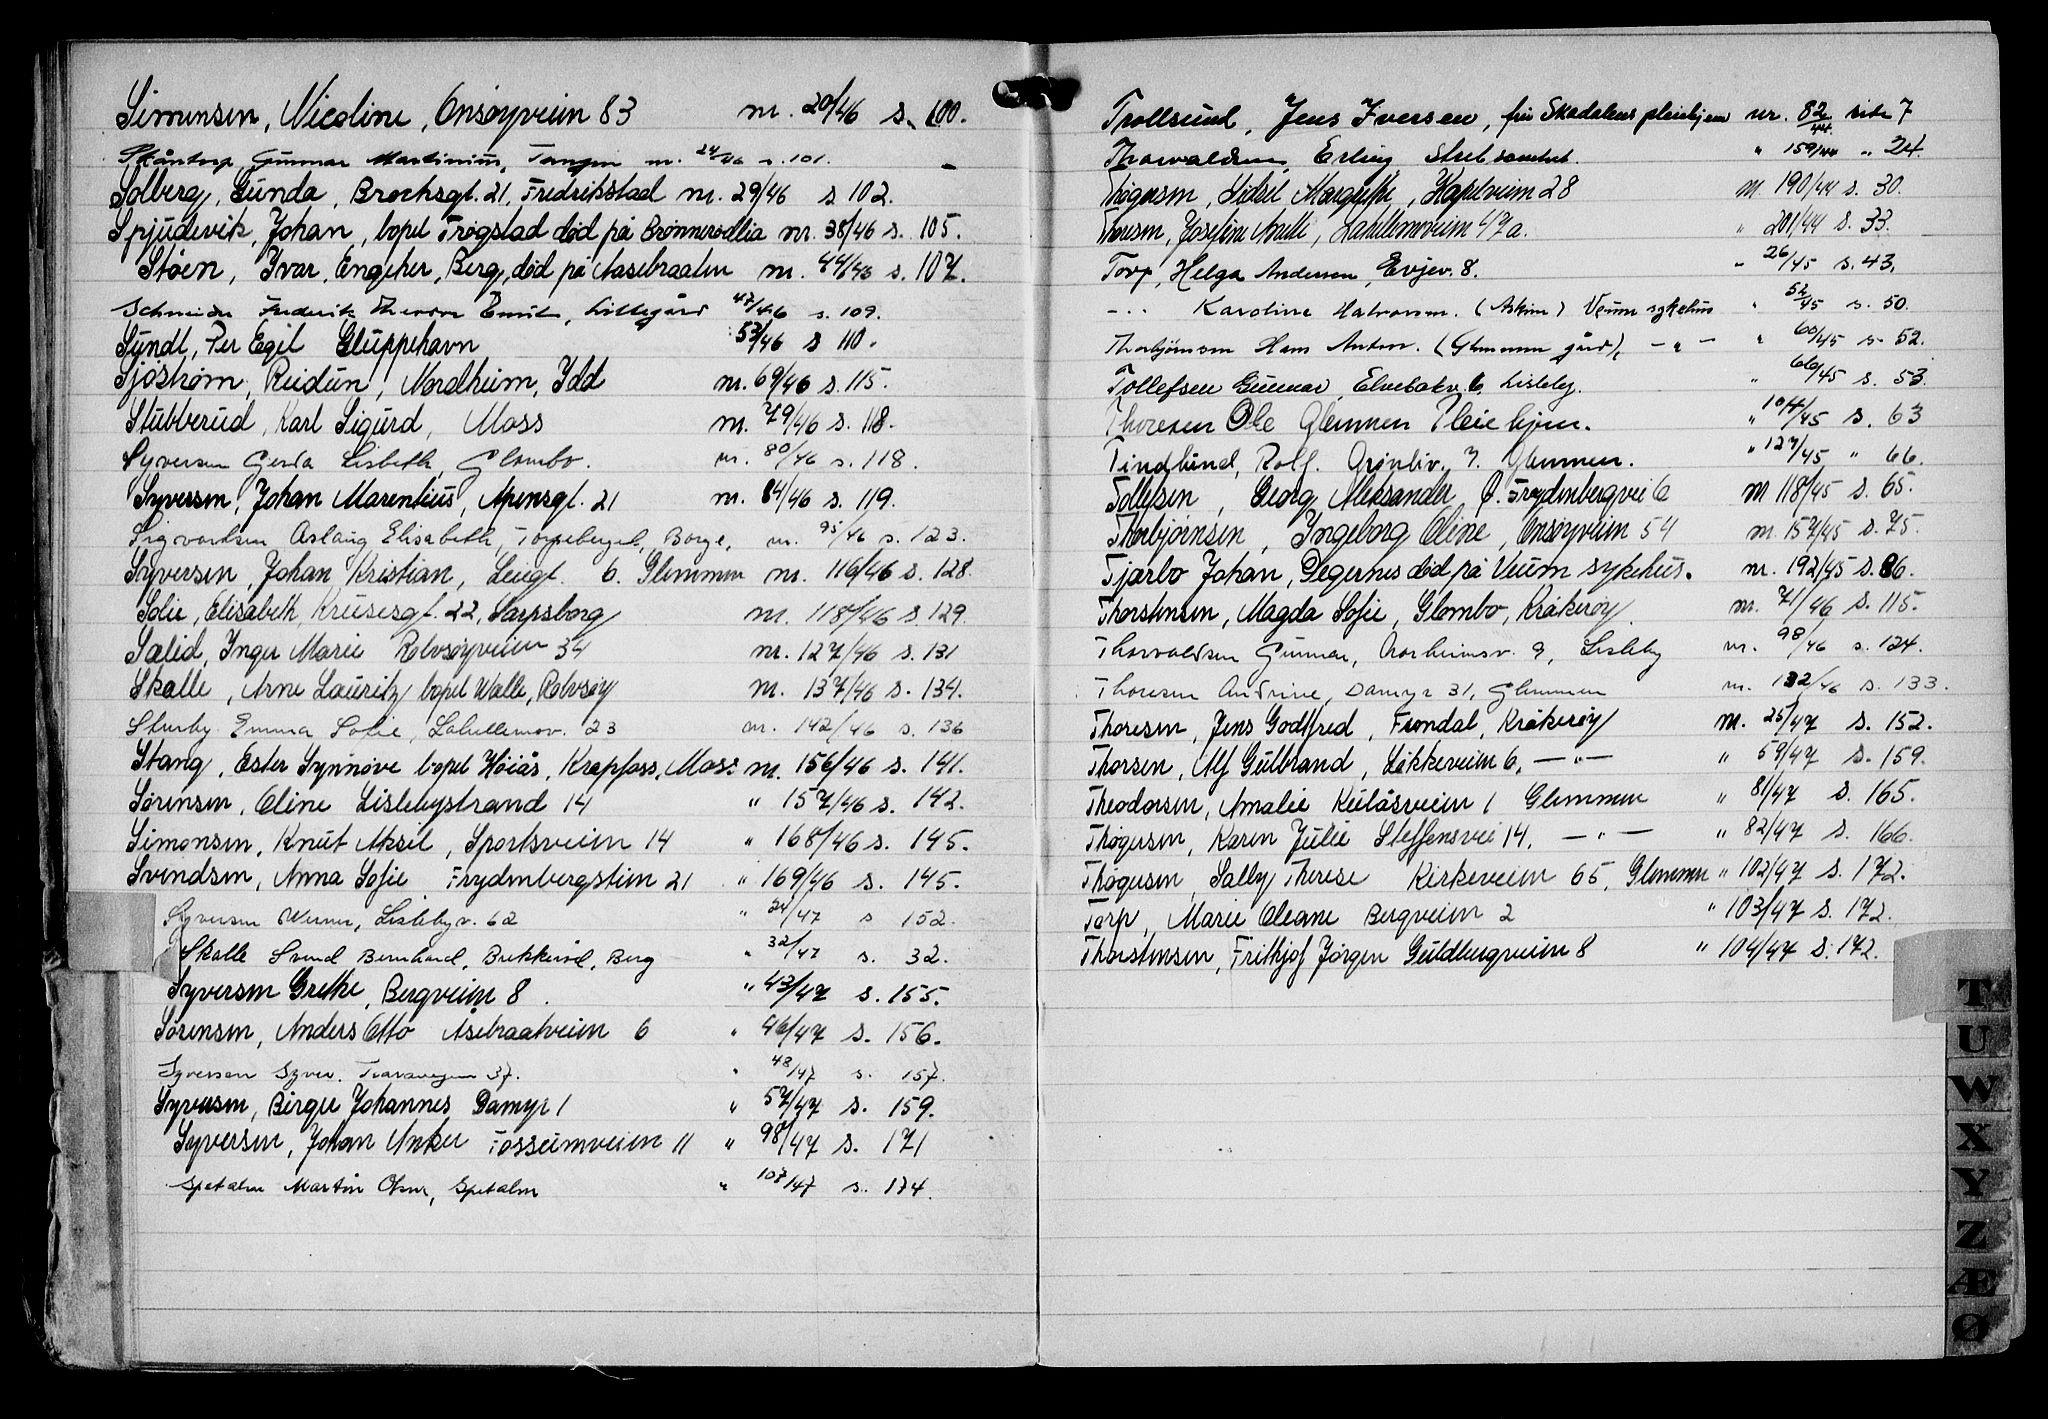 Simensen, Nicoline, Onsøyveien 83 nr. 20/46 s. 100.
Skåntorp, Gunnar Martinius, Tangen nr. 24/46 s. 101.
Solberg, Gunda, Brochsgt. 21, Fredrikstad nr. 29/46 s 102.
Spjudevik, Johan, bopel Trøgstad død på Brønnerødlia nr. 38/46 s. 105.
Støen, Ivar, Engeker, Berg, død på Aasebraaten nr. 44/46 s. 107.
Schneider Frederik Theodor Emil, Lillegård 47/46 s. 109.
Sundt, Per Egil Gluppehavn 53/46 s 110.
Sjöström, Reidun, Nordheim, Idd nr. 69/46 s. 115.
Stubberud, Karl Sigurd, Moss nr. 79/46 s. 118.
Syversen Gerda Lisbeth, Glombo. nr. 80/46 s. 118.
Syversen, Johan Marentius, Apensgt. 21 nr. 84/46 s. 119.
Sigvartsen Aslaug Elisabeth, Torpeberget, Borge, nr. 95/46 s. 123.
Syversen, Johan Kristian, Leiegt. 6. Glemmen nr. 116/46 s. 128.
Solie, Elisabeth, Krusesgt. 22, Sarpsborg nr. 118/46 s. 129.
Sælid, Inger Marie Rolvsøyveien 34 nr. 127/46 s. 131
Skalle, Arne Lauritz bopel Walle, Rolvsøy nr. 137/46 s. 134.
Sturby Emma Sofie, Lahellemov. 23 nr. 142/46 s. 136
Stang, Ester Synnøve bopel Høiås, Krapfoss, Moss nr. 156/46 s. 141.
Sørensen, Oline Lislebystrand 14 " 157/46 s. 142.
Simonsen, Knut Aksel, Sportsveien 14 " 168/46 s. 145.
Svendsen, Anna Sofie Frydenbergstien 21 " 169/46 s. 145.
Syversen Werner, Lislebyv. 62 " 24/47 s 152.
Skalle Svend Bernhard, Brekkerød, Berg " 32/47 s. 32.
Syversen Grethe, Bergveien 8. " 43/47 s. 155.
Sørensen, Anders Otto Åsebraatveien 6 " 46/47 s. 156.
Syversen Syver. Traraveien 37. " 48/47 s. 157.
Syversen, Birger Johannes, Damyr 1 " 57/47 s. 159.
Syversen, Johan Anker Fosseumveien 11 " 98/47 s. 171
Spetalen Martin Olsen, Spetalen " 107/47 s. 174.
Trollsund, Jens Iversen, fru Skadalens pleiehjem nr. 82/44 side 7
Thorvaldsen, Erling " 159/44 " 24.
Thøgersen, Sidsel Margrethe, Kapelveien 28 nr. 190/44 s. 30.
Thoresen, Josefine Amalie, Lahellemoveien 47a. " 201/44 s. 33.
Torp, Helga Andersen, Evjev. 8. " 26/45 s. 43.
- . . Karoline Halvorsen. (Askim) Veum sykehus " 52/45 s. 50.
Thorbjørnsen Hans Anton. (Glemmen gård), - " - " 60/45 s. 52.
Tollefsen Gunnar, Elvebakv. 6, Lisleby. " 66/45 s. 53.
Thoresen Ole Glemmen Pleiehjem. " 104/45 s. 63
Tindlund, Rolf. Grønliv. 7. Glemmen. " 127/45 " 66.
Tollefsen, Georg Aleksander, Ø. Frydenbergvei 6 nr 118/45 s. 65.
Thorbjørnsen, Ingeborg Oline, Onsøyveien 54 nr. 157/45 s. 75.
Tjærbo Johan, Degernes død på Veum sykehus. nr. 192/45 s. 86.
Thorstensen, Magda Sofie, Glombo, Kråkerøy nr. 71/46 s. 115.
Thorvaldsen Gunnar, Aarheimsv. 9, Lisleby nr. 98/46 s. 124.
Thoresen Andrine, Damyr 31, Glemmen nr. 132/46 s. 133.
Thoresen, Jens Godtfred, Femdal, Kråkerøy nr. 25/47 s. 152.
Thorsen, Alf Gulbrand, Løkkeveien 6, - " - " 59/47 s. 159.
Theodorsen, Amalie Keulåsveien 1 Glemmen " 81/47 s. 165.
Thøgersen, Karen Julie Steffensvei 14, - " - " 82/47 s. 166.
Thøgersen, Sally Therese Kirkeveien 65, Glemmen " 102/47 s. 172.
Torp, Marie Oleane Bergveien 2 " 103/47 s. 172.
Thorstensen, Frithjof Jørgen Guldbergveien 8 " 104/47 s. 172.
T
U
W
X
Y
Z
Æ
Ø